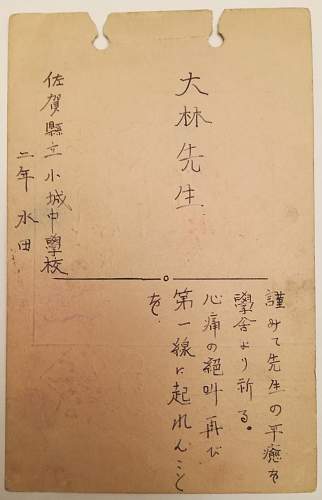 大林先生
佐賀縣立小城中學校
二年 水田
謹みて先生の平癒を
學舍より祈る。
心痛の絕叫再び
第一線に起れんこと
を.